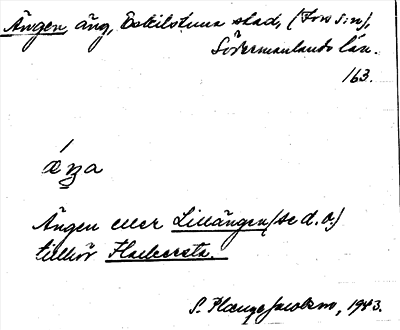 Ängen, äng, Eskilstuna stad, (Fors sn),
Södermanlands län.
163.
Ängen eller Lillängen (se d.o.)
tillhör
S. Plænge Jacobson, 1943.